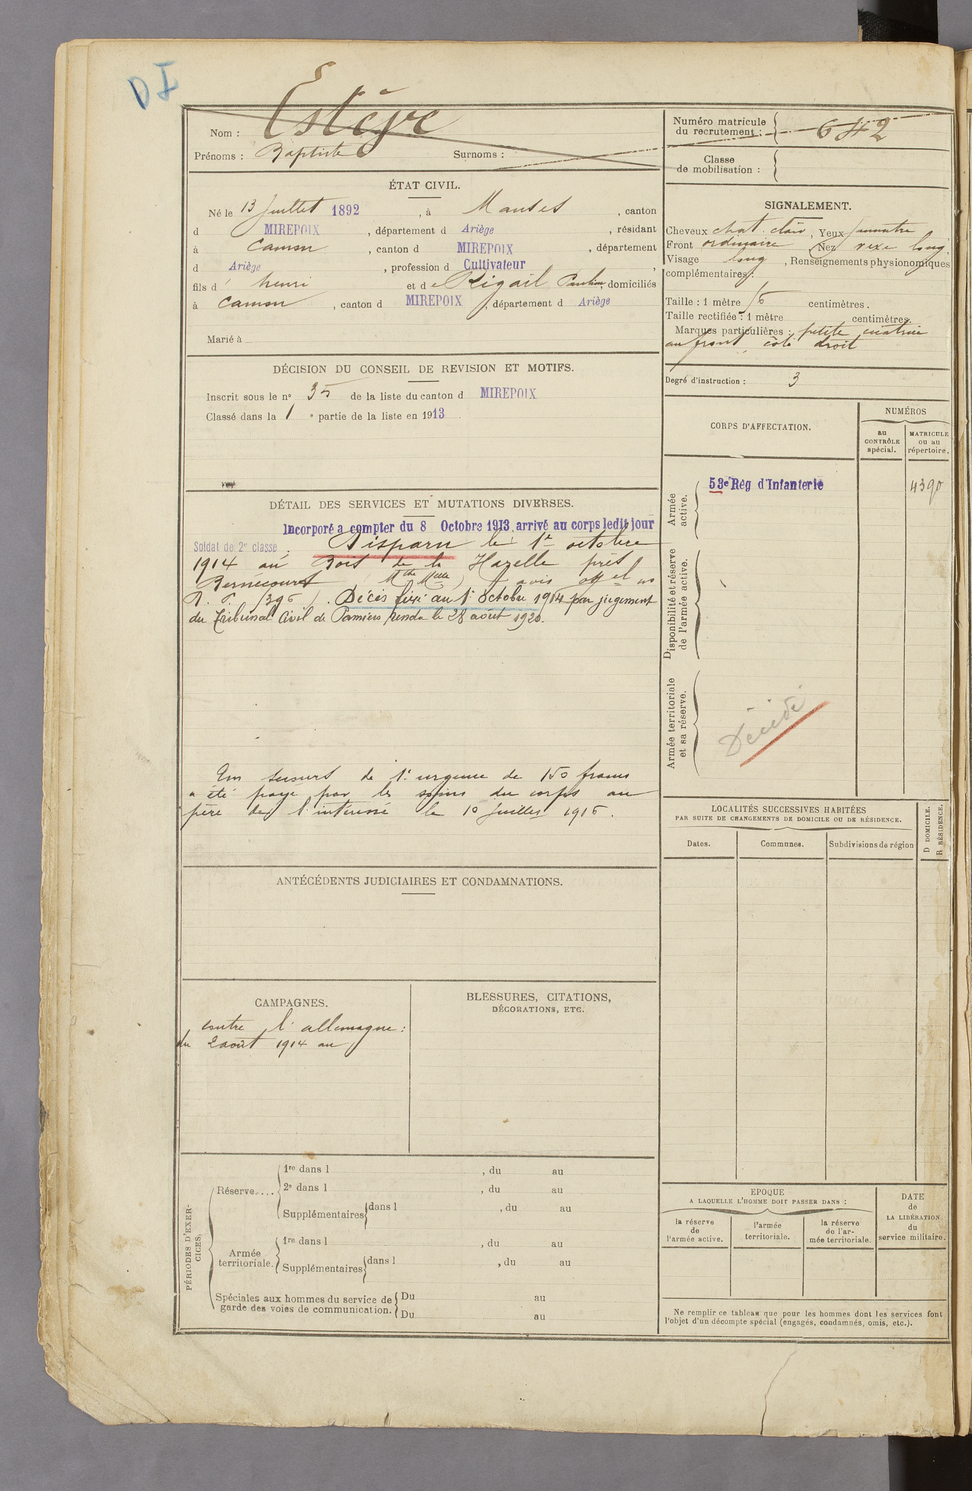 DI
Nom : Estèbe
Prénoms : Baptiste Surnoms :
Numéro matricule du recrutement : 642
Classe de mobilisation :
ÉTAT CIVIL.
Né le 13 Juillet 1892, à Manses, canton
d MIREPOIX, département d Ariège, résidant
à Camon, canton d MIREPOIX, département
d Ariège, profession d Cultivateur,
fils d' henri et de Rigail domiciliés
à Camon, canton d MIREPOIX, département d Ariège
Marié à
SIGNALEMENT.
Cheveux chat. clair, Yeux
Front ordinaire Nez vexe long.
Visage long, Renseignements physionomiques
complémentaires :
Taille : 1 mètre 76 centimètres.
Taille rectifiée : 1 mètre centimètres.
Marques particulières : petite cicatrice
au front côté droit
Degré d'instruction : 3
DÉCISION DU CONSEIL DE REVISION ET MOTIFS.
Inscrit sous le nº 35 de la liste du canton d MIREPOIX
Classé dans la 1e partie de la liste en 1913
CORPS D'AFFECTATION.
NUMÉROS
au CONTRÔLE spécial.
MATRICULE ou au répertoire.
Armée active.
53e Rég d'Infanterie
4390
Disponibilité et réserve de l'armée active.
Armée territoriale et sa réserve.
Décédé
DÉTAIL DES SERVICES ET MUTATIONS DIVERSES.
Incorporé à compter du 8 Octobre 1913, arrivé au corps ledit jour
Soldat de 2e classe. Disparu le 1er octobre
1914 au Bois de la Hazelle près
Bernecourt (Mthe Mlle) avis offel no
R. P. 1396). Décès fixé au 1er Octobre 1914 par jugement
du Tribunal Civil de Pamiers rendu le 28 août 1920.
Un secours de 1e urgence de 150 francs
a été payé par les soins du corps au
père de l'intéressé le 10 Juillet 1916.
LOCALITÉS SUCCESSIVES HABITÉES
PAR SUITE DE CHANGEMENTS DE DOMICILE OU DE RÉSIDENCE.
D DOMICILE. R RÉSIDENCE.
Dates. Communes. Subdivisions de région
ANTÉCÉDENTS JUDICIAIRES ET CONDAMNATIONS.
CAMPAGNES.
contre l'allemagne :
du 2 août 1914 au
BLESSURES, CITATIONS,
DÉCORATIONS, ETC.
PÉRIODES D'EXERCICES.
Réserve....
1re dans l , du au
2e dans l , du au
Supplémentaires dans l , du au
Armée territoriale.
1re dans l , du au
Supplémentaires dans l , du au
Spéciales aux hommes du service de garde des voies de communication.
Du au
Du au
EPOQUE
A LAQUELLE L'HOMME DOIT PASSER DANS :
la réserve de l'armée active.
l'armée territoriale.
la réserve de l'armée territoriale.
DATE de LA LIBÉRATION du service militaire.
Ne remplir ce tableau que pour les hommes dont les services font
l'objet d'un décompte spécial (engagés, condamnés, omis, etc.).